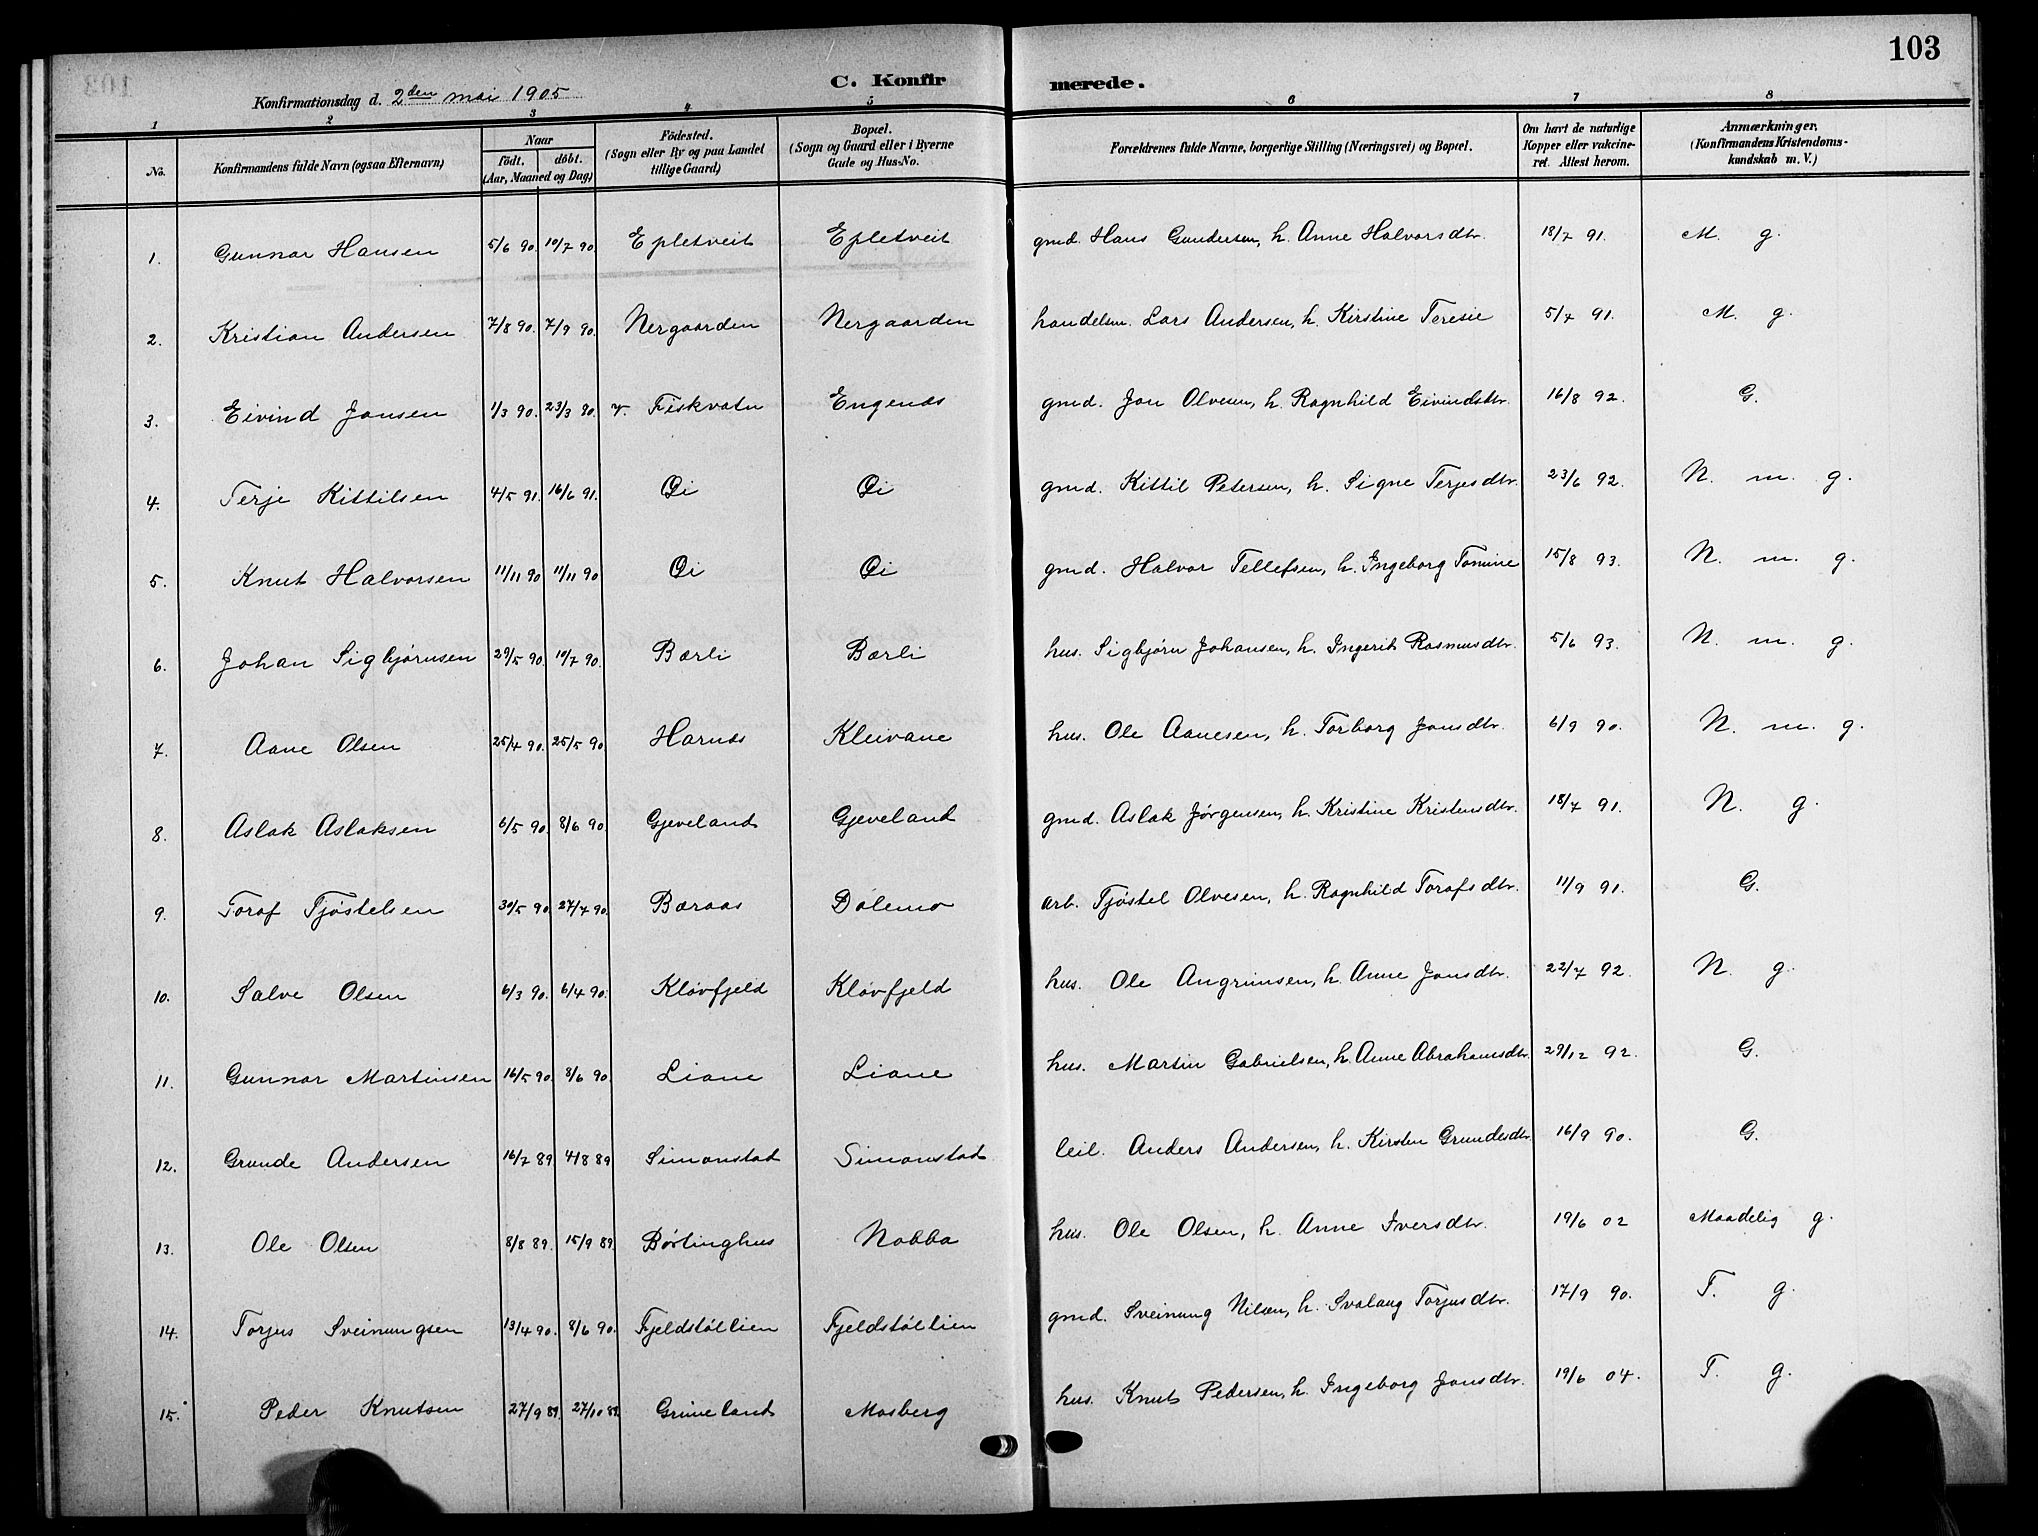 103
C. Konfirmerede.
Konfirmationsdag d. 2den mai 1905
1 2 3 4 5 6 7 8
No. Konfirmandens fulde Navn (ogsaa Efternavn) Naar födt. döbt. (Aar, Maaned og Dag) Födested. (Sogn eller By og paa Landet tillige Gaard) Bopæl. (Sogn og Gaard eller i Byerne Gade og Hus-No. Forældrenes fulde Navne, borgerlige Stilling (Næringsvei) og Bopæl. Om havt de naturlige Kopper eller vakcineret. Attest herom. Anmærkninger. (Konfirmandens Kristendomskundskab m. V.)
1. Gunnar Hansen 5/6 90. 10/7 90. Epletveit Epletveit gmd. Hans Gundersen, h. Anne Halvorsdtr. 18/7 91. M. g.
2. Kristian Andersen 7/8 90. 7/9 90. Nergaarden Nergaarden handelsm. Lars Andersen, h. Kirstine Teresie 5/7 91. M. g.
3. Eivind Jonsen 1/3 90. 23/3 90. Y. Fiskvatn Engenes gmd. Jon Olvesen, h. Ragnhild Eivindsdtr. 16/8 92. G.
4. Terje Kittilsen 4/5 91. 16/6 91. Øi Øi gmd. Kittil Petersen, h. Signe Terjesdtr. 23/6 92. N. m. g.
5. Knut Halvorsen 11/11 90 11/11 90 Øi Øi gmd. Halvor Tellefsen, h. Ingeborg Tomine 15/8 93. N. m. g.
6. Johan Sigbjørnsen 29/5 90. 10/7 90. Bærli Bærli hus. Sigbjørn Johansen, h. Ingerit Rasmusdtr. 5/6 93. N. m. g.
7. Aane Olsen 25/4 90. 25/5 90. Harnes Kleivane hus. Ole Aanesen, h. Torborg Jonsdtr. 6/9 90. N. m. g.
8. Aslak Aslaksen 6/5 90. 8/6 90. Gjeveland Gjeveland gmd. Aslak Jørgensen, h. Kristine Kristensdtr. 18/7 91. N. g.
9. Toraf Tjøstelsen 30/5 90. 27/7 90. Bæraas Dølemo arb. Tjøstel Olvesen, h. Ragnhild Torafsdtr. 11/9 91. G.
10. Salve Olsen 6/3 90. 6/4 90. Kløvfjeld Kløvfjeld hus. Ole Angrimsen, h. Anne Jonsdtr. 22/7 92. N. g.
11. Gunnar Martinsen 16/5 90. 8/6 90. Liane Liane hus. Martin Gabrielsen, h. Anne Abrahamsdtr. 29/12 92. G.
12. Grunde Andersen 16/7 89 4/8 89 Simonstad Simonstad leil. Anders Andersen, h. Kirsten Grundesdtr. 16/9 90. G.
13. Ole Olsen 8/8 89. 15/9 89. Børtinghus Nabba hus. Ole Olsen, h. Anne Iversdtr. 19/6 02 Maadelig g.
14. Torjus Sveinungsen 13/4 90. 8/6 90. Fjeldstøllien Fjeldstøllien gmd. Sveinung Nilsen, h. Svalaug Torjusdtr. 17/9 90. T. g.
15. Peder Knutsen 27/9 89. 27/10 89. Grimeland Mosberg hus. Knut Pedersen, h. Ingeborg Jonsdtr. 19/6 04. T. g.